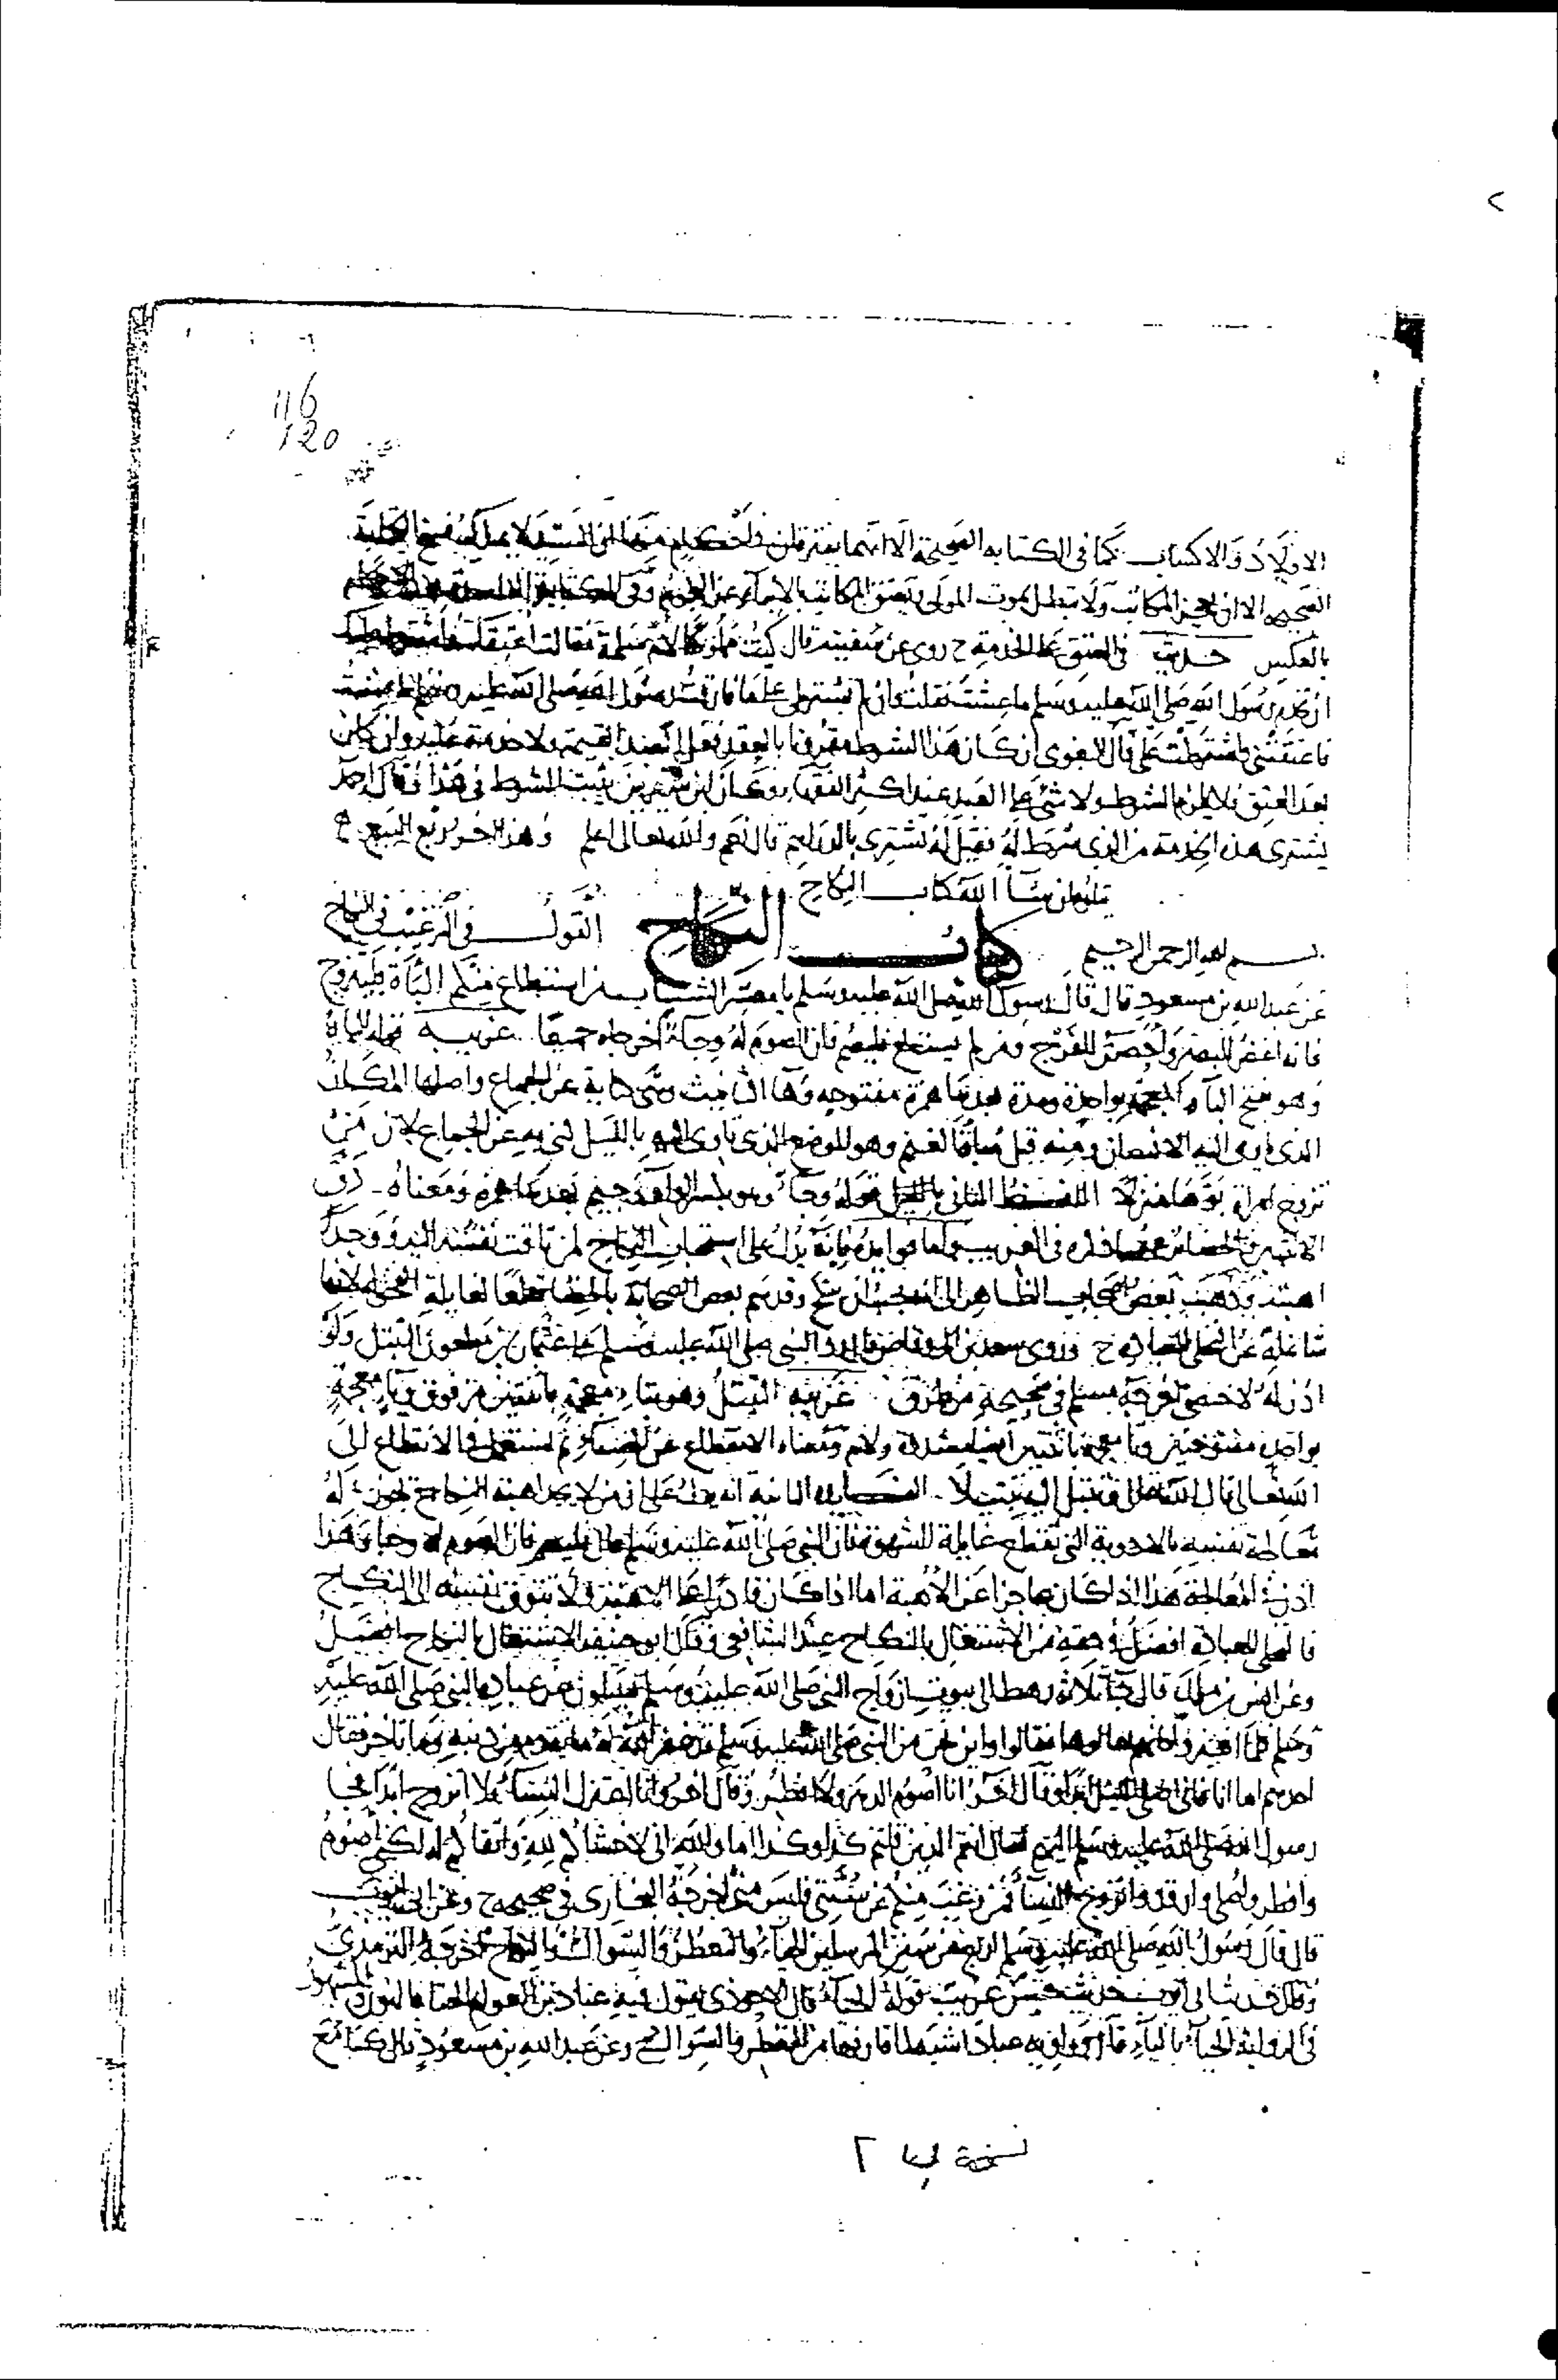 116
120
الاولاد والاكساب كما في الكتابه الصحيحة الا انهما يفترقان في احكام منها ان السيد لا يملك فسخ الكتابة
الصحيحه الا ان يعجز المكاتب ولا تبطل بموت المولى ويعتق المكاتب بالابراء عن النجوم وفي الكتابة الفاسدة
بالعكس حديث في العتق على الخدمة ح روي عن سفينة قال كنت مملوكا لام سلمة فقالت اعتقك واشترط عليك
ان تخدم رسول الله صلى الله عليه وسلم ما عشت فقلت وان لم تشترطي علي ما فارقت رسول الله صلى الله عليه وسلم ما عشت
فاعتقتني واشترطت علي قال البغوي ان كان هذا الشرط مقرونا بالعقد فعلى العبد القيمة ولا خدمة عليه وان كان
بعد العتق فلا يلزم الشرط ولا شئ على العبد عند اكثر الفقهاء وكان ابن سيرين يثبت الشرط في هذا وقال احمد
يشتري هذه الخدمة من الذي شرط له فقيل له تشترى بالدراهم قال نعم والله تعالى اعلم وهذا اخر ربع البيع ح
يتلوه ان شاء الله كتاب النكاح
بسم الله الرحمن الرحيم كتاب النكاح القول في الترغيب في النكاح
عن عبد الله بن مسعود قال قال رسول الله صلى الله عليه وسلم يا معشر الشباب من استطاع منكم الباءة فليتزوج
فانه اغض للبصر واحصن للفرج ومن لم يستطع فليصم فان الصوم له وجاء اخرجاه جميعا غريبه قوله الباءة
وهو بفتح الباء المعجمة بواحدة ومدة بعدها همزة مفتوحه وهاء التانيث وهي كناية عن الجماع واصلها المكان
الذي ياوى اليه الانسان ومنه قيل مباءة الغنم وهو الموضع الذي تاوى اليه بالليل كني به عن الجماع لان من
تزوج امراة بوءها منزلا اللفظ الثاني قوله وجاء وهو بكسر الواو وجيم بعدها همزة ومعناه دق
الانثيين في الغريب واما فوائده فانه يدل على استحباب النكاح لمن تاقت نفسه اليه ووجد
اهبته وذهب بعض اصحاب الظاهر الى انه يجب ان ينكح وقد هم بعض الصحابة بالخصا قطعا لغايلة
شاغله عن التخلي للعبادة ح وروى سعد بن ابي وقاص قال رد النبي صلى الله عليه وسلم على عثمان بن مظعون التبتل ولو
اذن له لاختصى اخرجه مسلم في صحيحه من طرق غريبه التبتل وهو بتاء معجمة باثنتين من فوق وباء معجمة
بواحدة مفتوحتين وتاء معجمة باثنتين ايضا مشددة ولام ومعناه الانقطاع عن ثم استعمل في الانقطاع الى
الله تعالى قال الله تعالى وتبتل اليه تبتيلا الثانية انه يدل على ان من لا يجد اهبة النكاح تجوز له
معالجة نفسه بالادوية التي تقطع غايلة الشهوة فان النبي صلى الله عليه وسلم قال فليصم فان الصوم له وجاء وهذا
اذن في المعالجة هذا اذا كان عاجزا عن الاهبة اما اذا كان قادرا على الاهبة ولا تتوق نفسه الى النكاح
فالتخلي للعبادة افضل في حقه من الاشتغال بالنكاح عند الشافعي وقال ابو حنيفة الاشتغال بالنكاح افضل
وعن انس بن مالك قال جاء ثلاثة رهط الى بيوت ازواج النبي صلى الله عليه وسلم يسئلون عن عبادة النبي صلى الله عليه
وسلم فلما اخبروا كانهم تقالوها فقالوا واين نحن من النبي صلى الله عليه وسلم قد غفر الله له ما تقدم من ذنبه وما تاخر فقال
احدهم اما انا فاني اصلي الليل ابدا وقال اخر انا اصوم الدهر ولا افطر وقال اخر وانا اعتزل النساء فلا اتزوج ابدا فجاء
رسول الله صلى الله عليه وسلم اليهم فقال انتم الذين قلتم كذا وكذا اما والله اني لاخشاكم لله واتقاكم له لكني اصوم
وافطر واصلي وارقد واتزوج النساء فمن رغب منكم عن سنتي فليس مني اخرجه البخاري في صحيحه ح وعن ابي ايوب
قال قال رسول الله صلى الله عليه وسلم اربع من سنن المرسلين الحياء والتعطر والسواك والنكاح اخرجه الترمذي
وقال حديث ابي ايوب حديث حسن غريب قوله الحياء قال الاحوذي يقول فيه عباد بن العوام الحنا بالنون والمشهور
في الرواية الحياء بالياء قال وما يرويه عباد اشبه لما قارنها من التعطر والسواك ح وعن عبد الله بن مسعود قال كنا مع
نسخة ب ٢